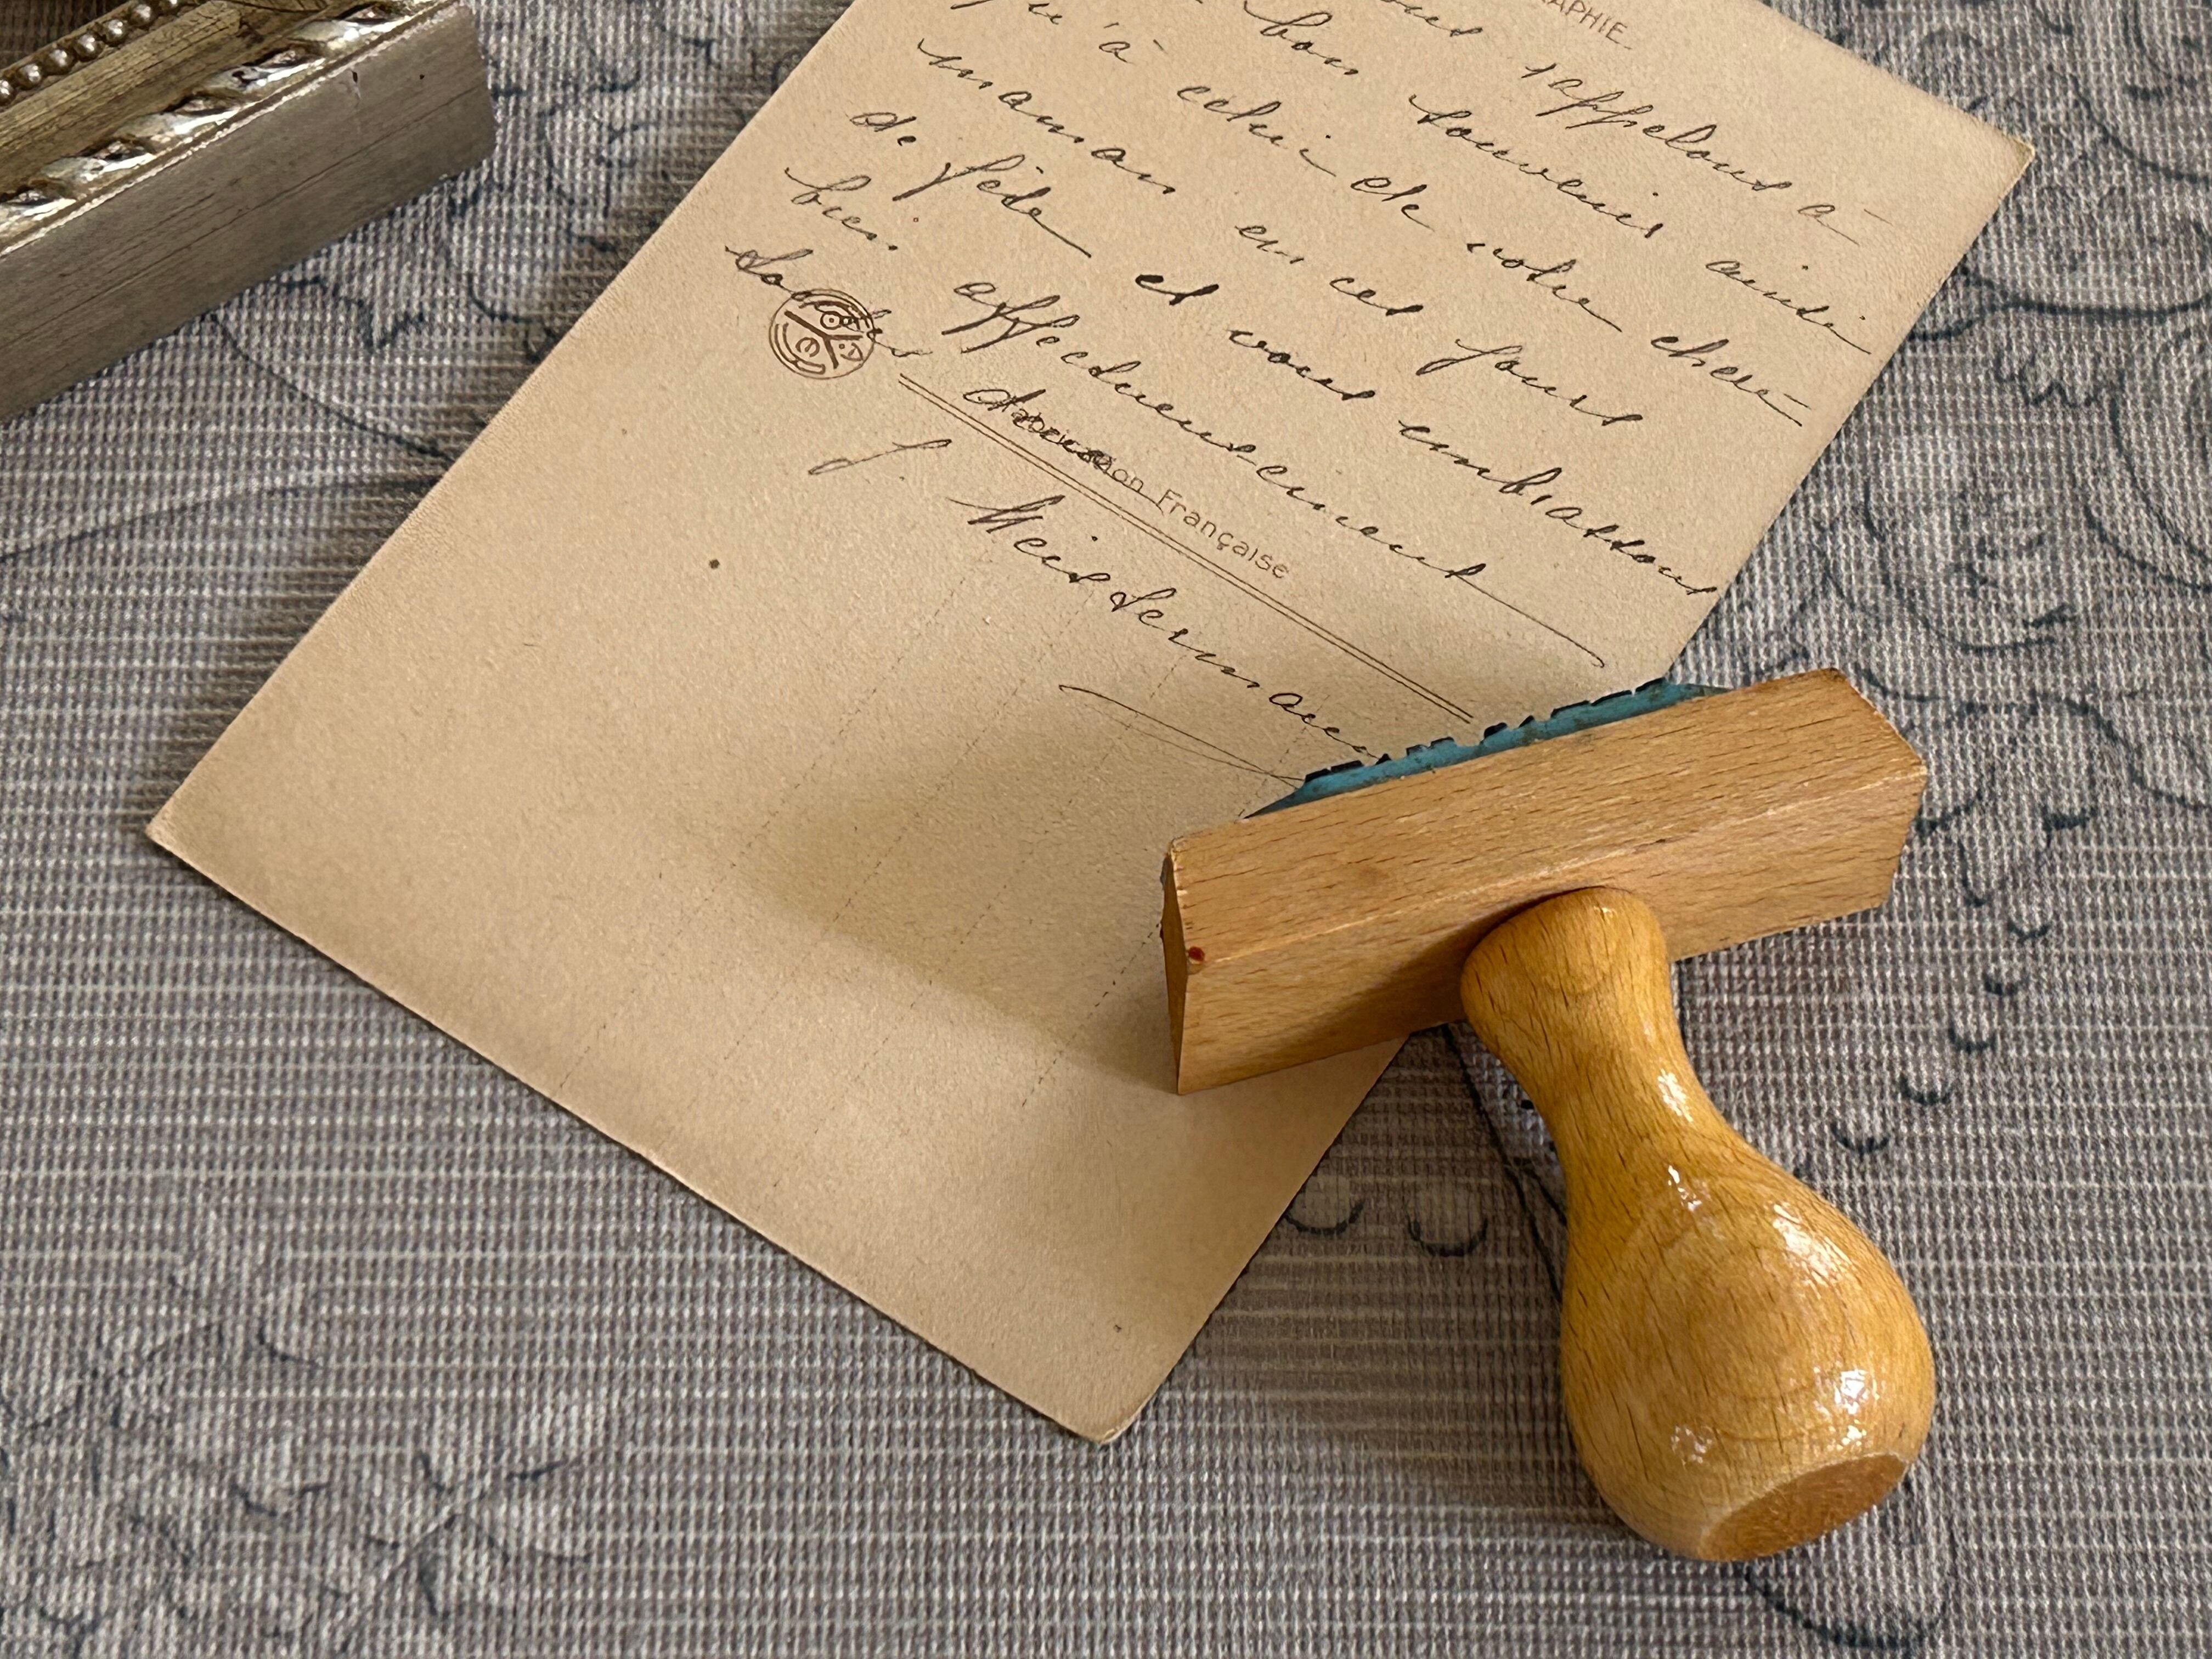 APHIE.
rappelons à
bon souvenir ainsi
qu'à celui de votre chère
maman en ces jours
de fête et vous embrassons
bien affectueusement
toutes deux
Fabrication Française
J. Meistermann